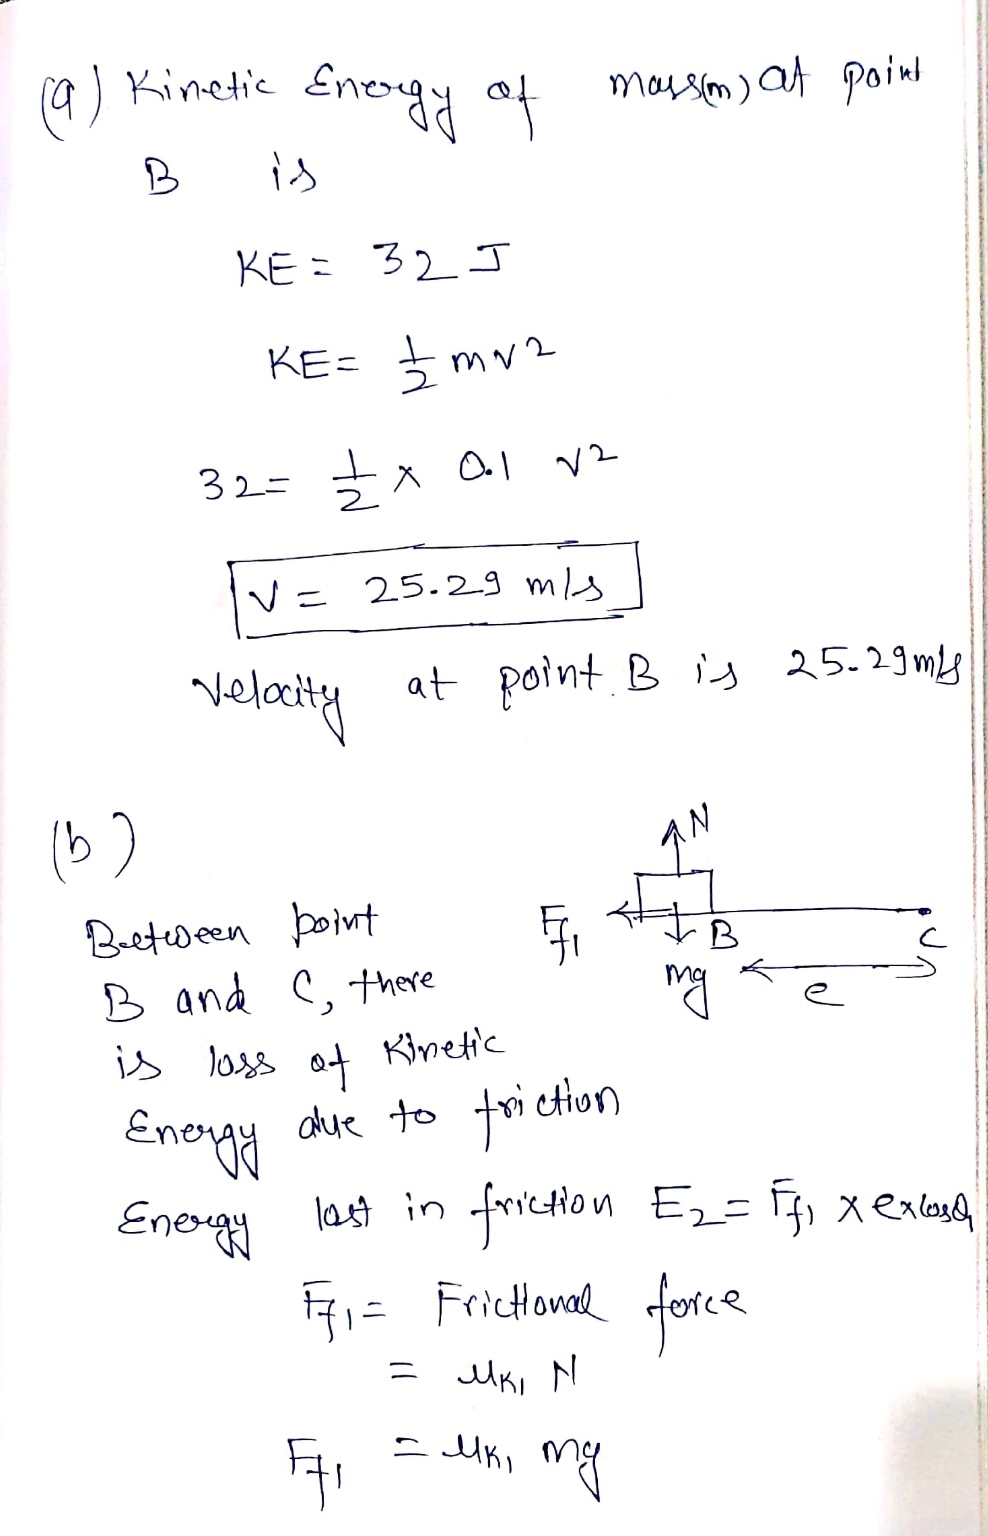 (a) Kinetic Energy of mass(m) at point
B is
KE = 32 J
KE = 1/2 mv2
32 = 1/2 x 0.1 v2
V = 25.29 m/s
velocity at point B is 25.29 m/s
(b)
N
Between point
Ff1 B C
B and C, there
mg e
is loss of Kinetic
Energy due to friction
Energy lost in friction E2 = Ff1 x e x cosθ1
Ff1 = Frictional force
= μK1 N
Ff1 = μK1 mg